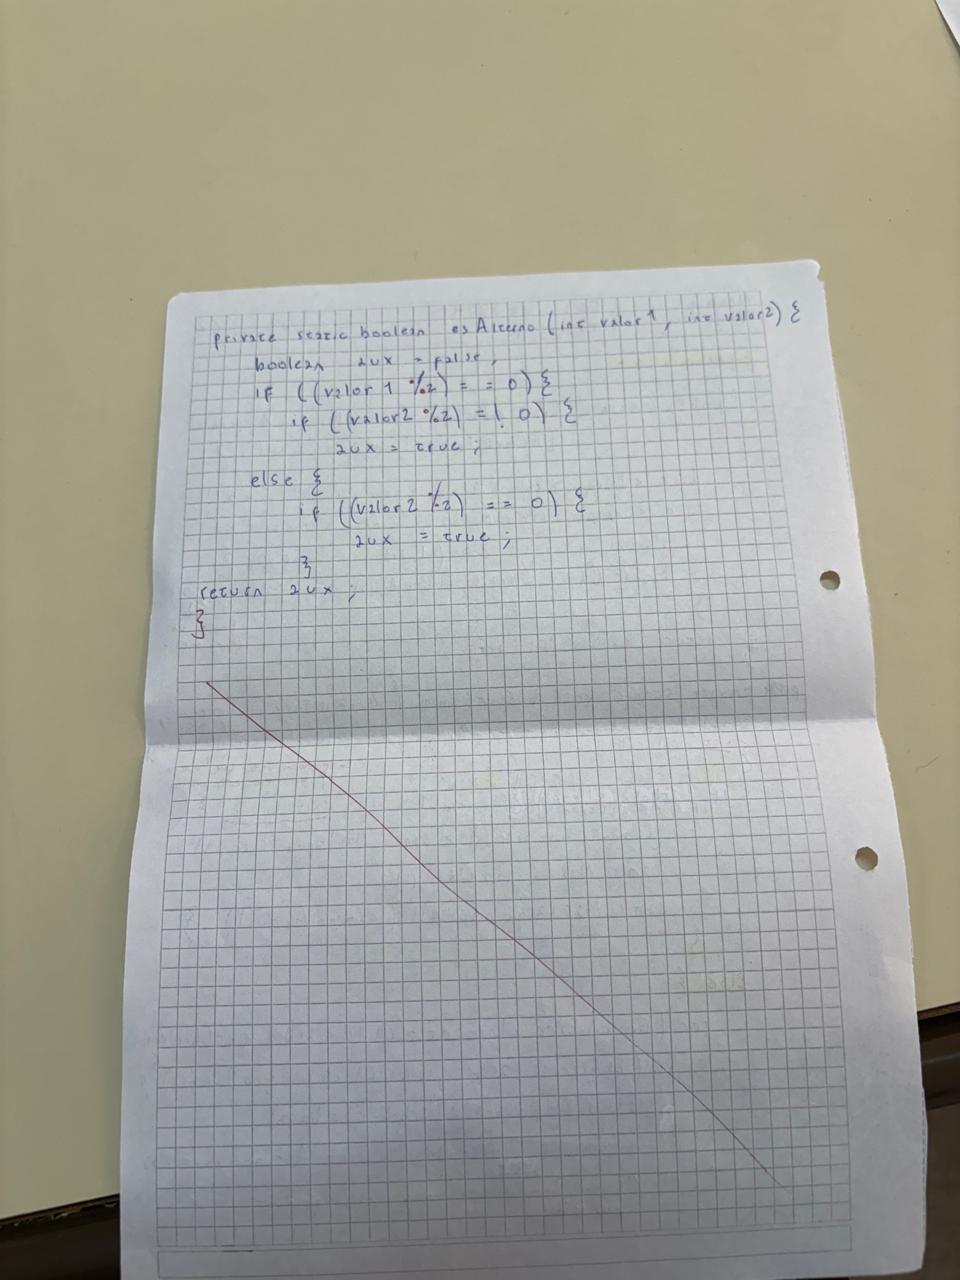 private static boolean esAlterno (int valor1, int valor2) {
boolean aux = false;
if ((valor1 %2) = = 0) {
if ((valor2 %2) =! 0) {
aux = true ;
else {
if ((valor2 %2) == 0) {
aux = true ;
}
return aux ;
}